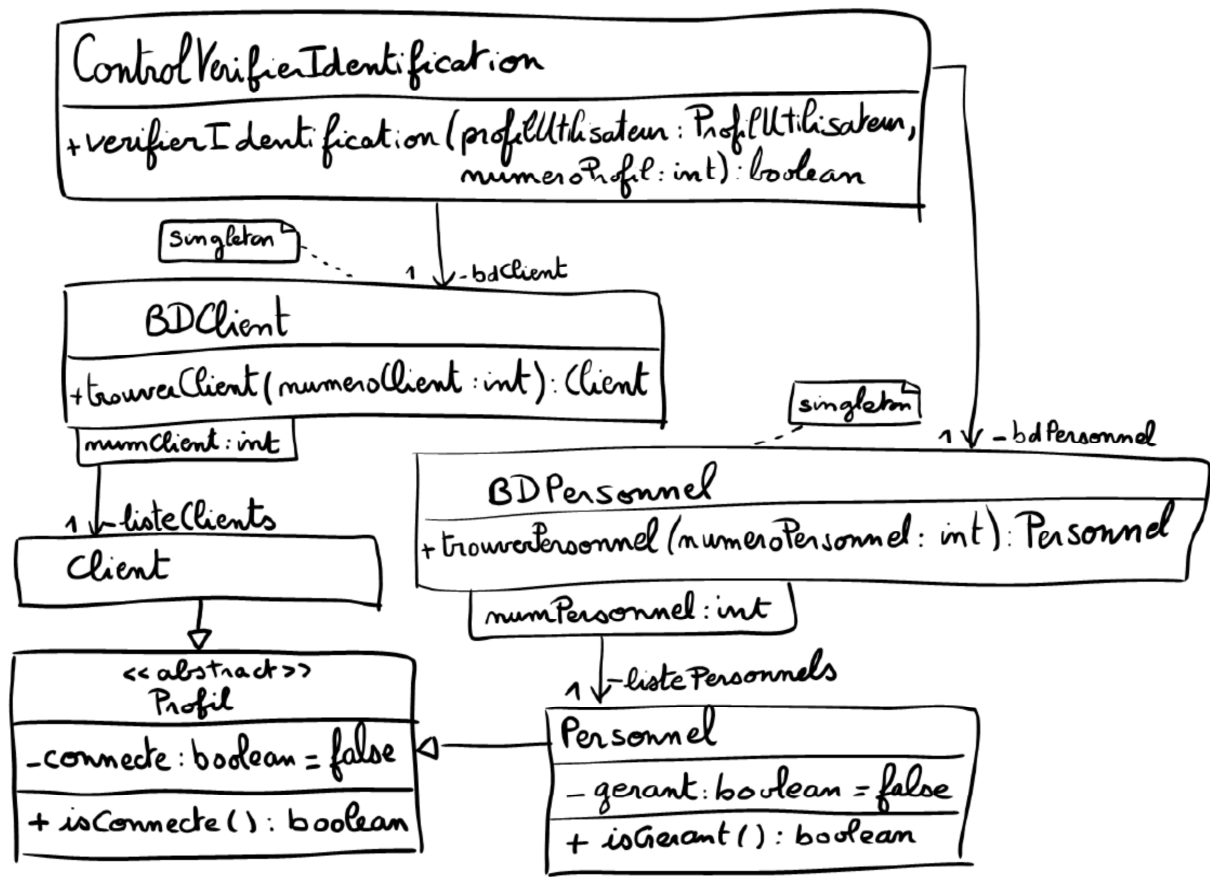 ControlVerifierIdentification
+verifierIdentification(profilUtilisateur: ProfilUtilisateur,
numeroProfil: int): boolean
singleton
1
-bdClient
BDClient
+trouverClient(numeroClient: int): Client
numClient: int
singleton
1
-bdPersonnel
BDPersonnel
+trouverPersonnel(numeroPersonnel: int): Personnel
1
-listeClients
Client
numPersonnel: int
<<abstract>>
Profil
-connecte: boolean = false
+ isConnecte(): boolean
1
-listePersonnels
Personnel
- gerant: boolean = false
+ isGerant(): boolean